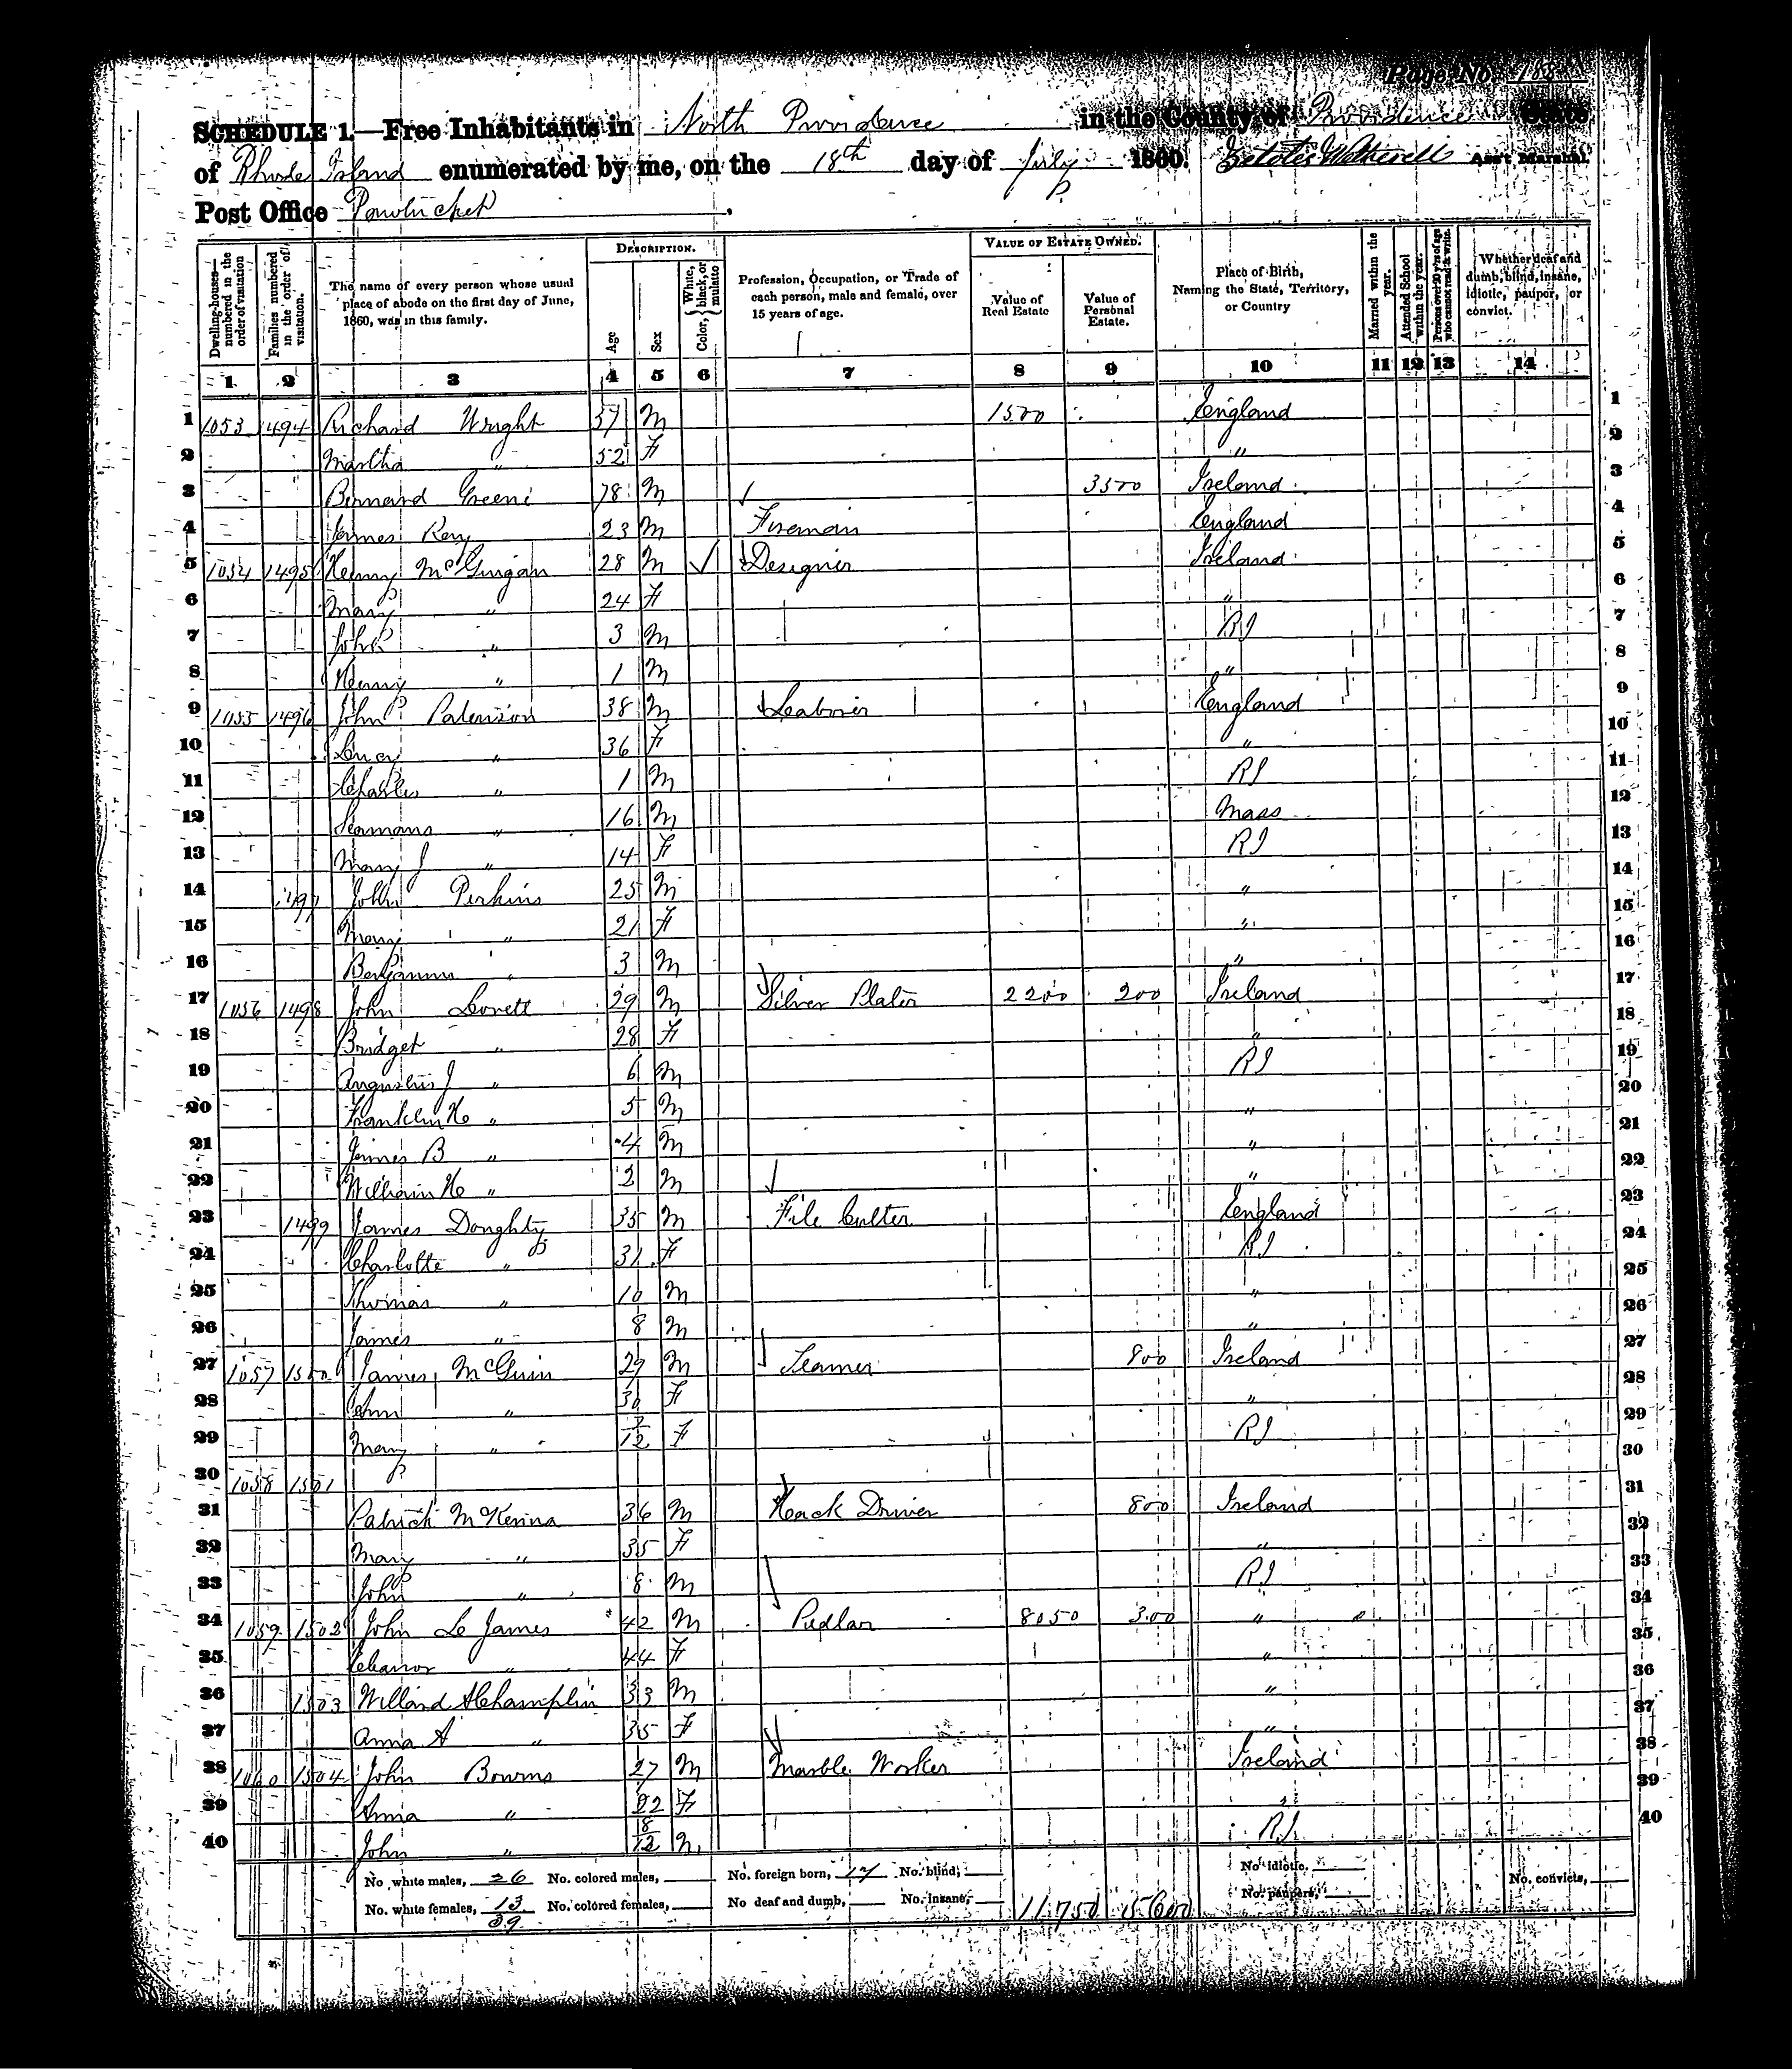 Page No. 188
SCHEDULE 1.—Free Inhabitants in North Providence in the County of Providence State
of Rhode Island enumerated by me, on the 18th day of July 1860. Ass't Marshal.
Post Office Pawtucket.
Dwelling-houses—numbered in the order of visitation
Families numbered in the order of visitation.
The name of every person whose usual place of abode on the first day of June, 1860, was in this family.
DESCRIPTION.
Age
Sex
Color, White, black, or mulatto
Profession, Occupation, or Trade of each person, male and female, over 15 years of age.
VALUE OF ESTATE OWNED.
Value of Real Estate
Value of Personal Estate.
Place of Birth, Naming the State, Territory, or Country
Married within the year.
Attended School within the year.
Persons over 20 y'rs of age who cannot read & write.
Whether deaf and dumb, blind, insane, idiotic, pauper, or convict.
1 2 3 4 5 6 7 8 9 10 11 12 13 14
1 1053 1494 Richard Wright 57 M 1500 England 1
2 Martha " 52 F " 2
3 Bernard Greene 78 M 3500 Ireland 3
4 James Ray 23 M Fireman England 4
5 1054 1495 Henry McGuigan 28 M Designer Ireland 5
6 Mary " 24 F " 6
7 John " 3 M RI 7
8 Henry " 1 M " 8
9 1055 1496 John Patenson 38 M Laborer England 9
10 Lucy " 36 F " 10
11 Charles " 1 M RI 11
12 Seamans " 16 M Mass 12
13 Mary J " 14 F RI 13
14 1497 John Perkins 25 M " 14
15 Mary " 21 F " 15
16 Benjamin " 3 M " 16
17 1056 1498 John Lovett 29 M Silver Plater 2200 200 Ireland 17
18 Bridget " 28 F " 18
19 Augustus J " 6 M RI 19
20 Franklin H " 5 M " 20
21 James B " 4 M " 21
22 William H " 2 M " 22
23 1499 James Doughty 35 M File Cutter England 23
24 Charlotte " 31 F RI 24
25 Thomas " 10 M " 25
26 James " 8 M " 26
27 1057 1500 James McGuin 29 M Teamer 800 Ireland 27
28 Ann " 30 F " 28
29 Mary " /12 F RI 29
30 1058 1501 30
31 Patrick McKenna 36 M Hack Driver 800 Ireland 31
32 Mary " 35 F " 32
33 John " 8 M RI 33
34 1059 1502 John Le James 42 M Pedlar 8050 300 " 34
35 Eleanor " 44 F " 35
36 1503 Willard A Champlin 33 M " 36
37 Anna A " 35 F " 37
38 1060 1504 John Bowens 27 M Marble Worker Ireland 38
39 Anna " 22 F " 39
40 John " 8/12 M RI 40
No. white males, 26 No. colored males, No. foreign born, 17 No. blind, No. idiotic, No. convicts,
No. white females, 13 No. colored females, No. deaf and dumb, No. insane, 11,750 5600 No. paupers,
39